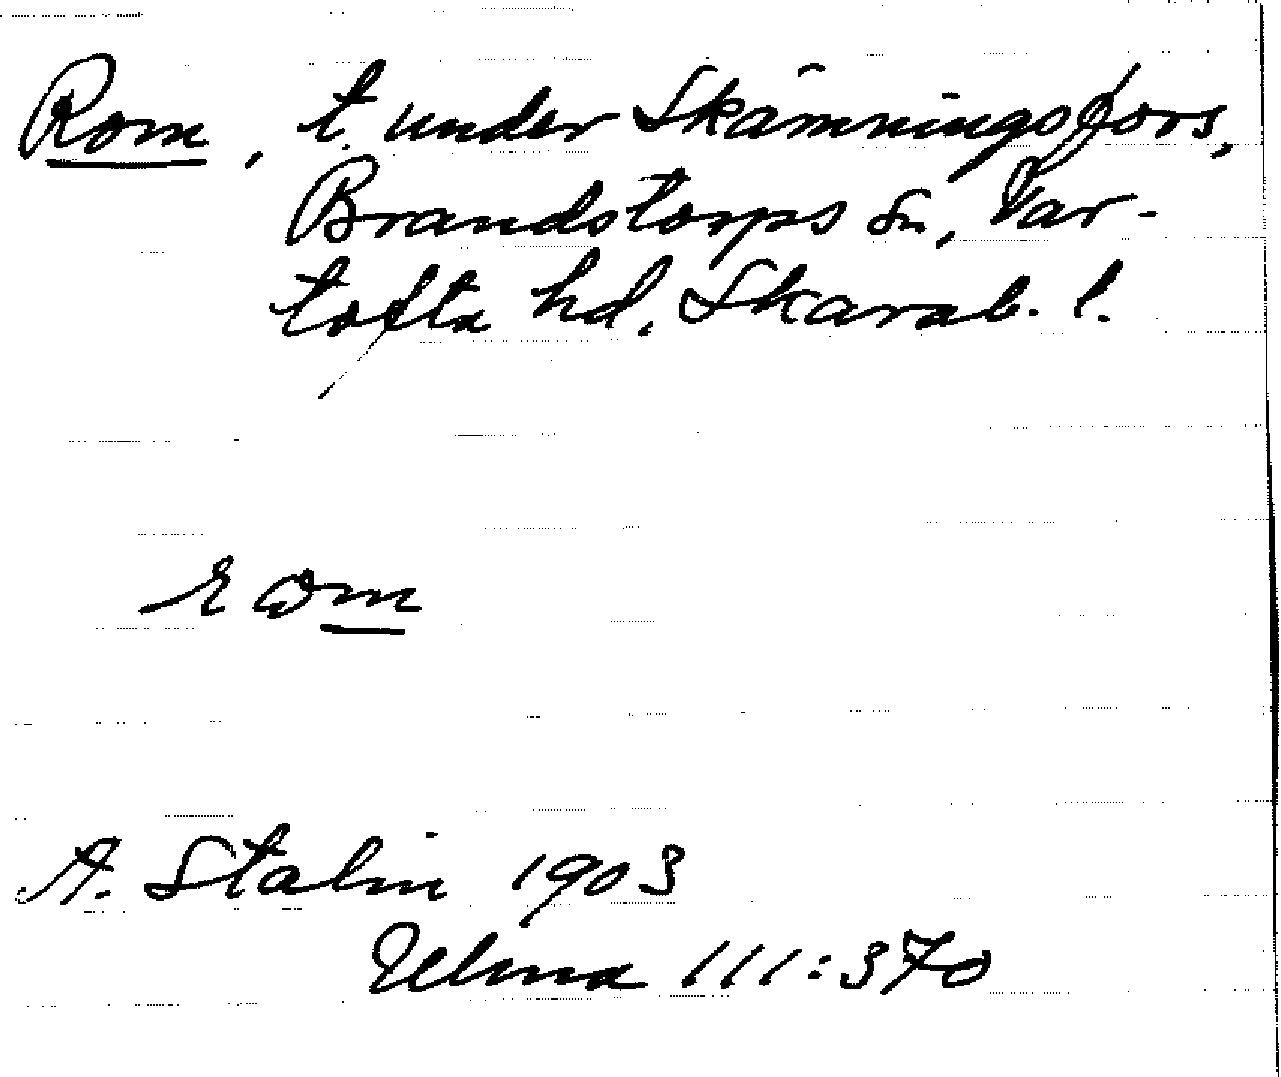 Rom, t. under Skämningsfors,
Brandstorps sn, Var-
tofta hd, Skarab. l.
A. Stalin 1903
Ulma 111:370